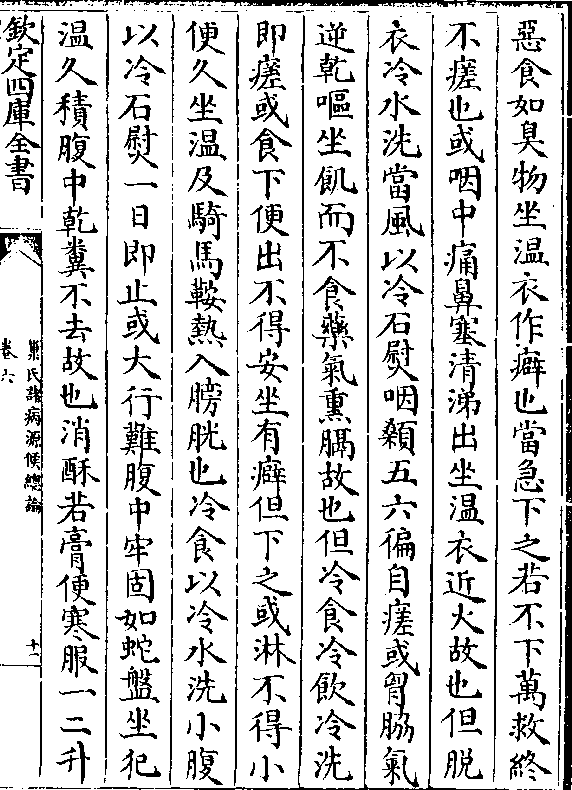 惡食如臭物坐温衣作癖也當急下之若不下萬救終
不瘥也或咽中痛鼻塞清涕出坐温衣近火故也但脱
衣冷水洗當風以冷石熨咽顙五六徧自瘥或胷脇氣
逆乾嘔坐飢而不食藥氣熏膈故也但冷食冷飲冷洗
即瘥或食下便出不得安坐有癖但下之或淋不得小
便久坐温及騎馬鞍熱入膀胱也冷食以冷水洗小腹
以冷石熨一日即止或大行難腹中牢固如蛇盤坐犯
温久積腹中乾糞不去故也消酥若膏便寒服一二升
欽定四庫全書
巢氏諸病源候總論
卷六
十一